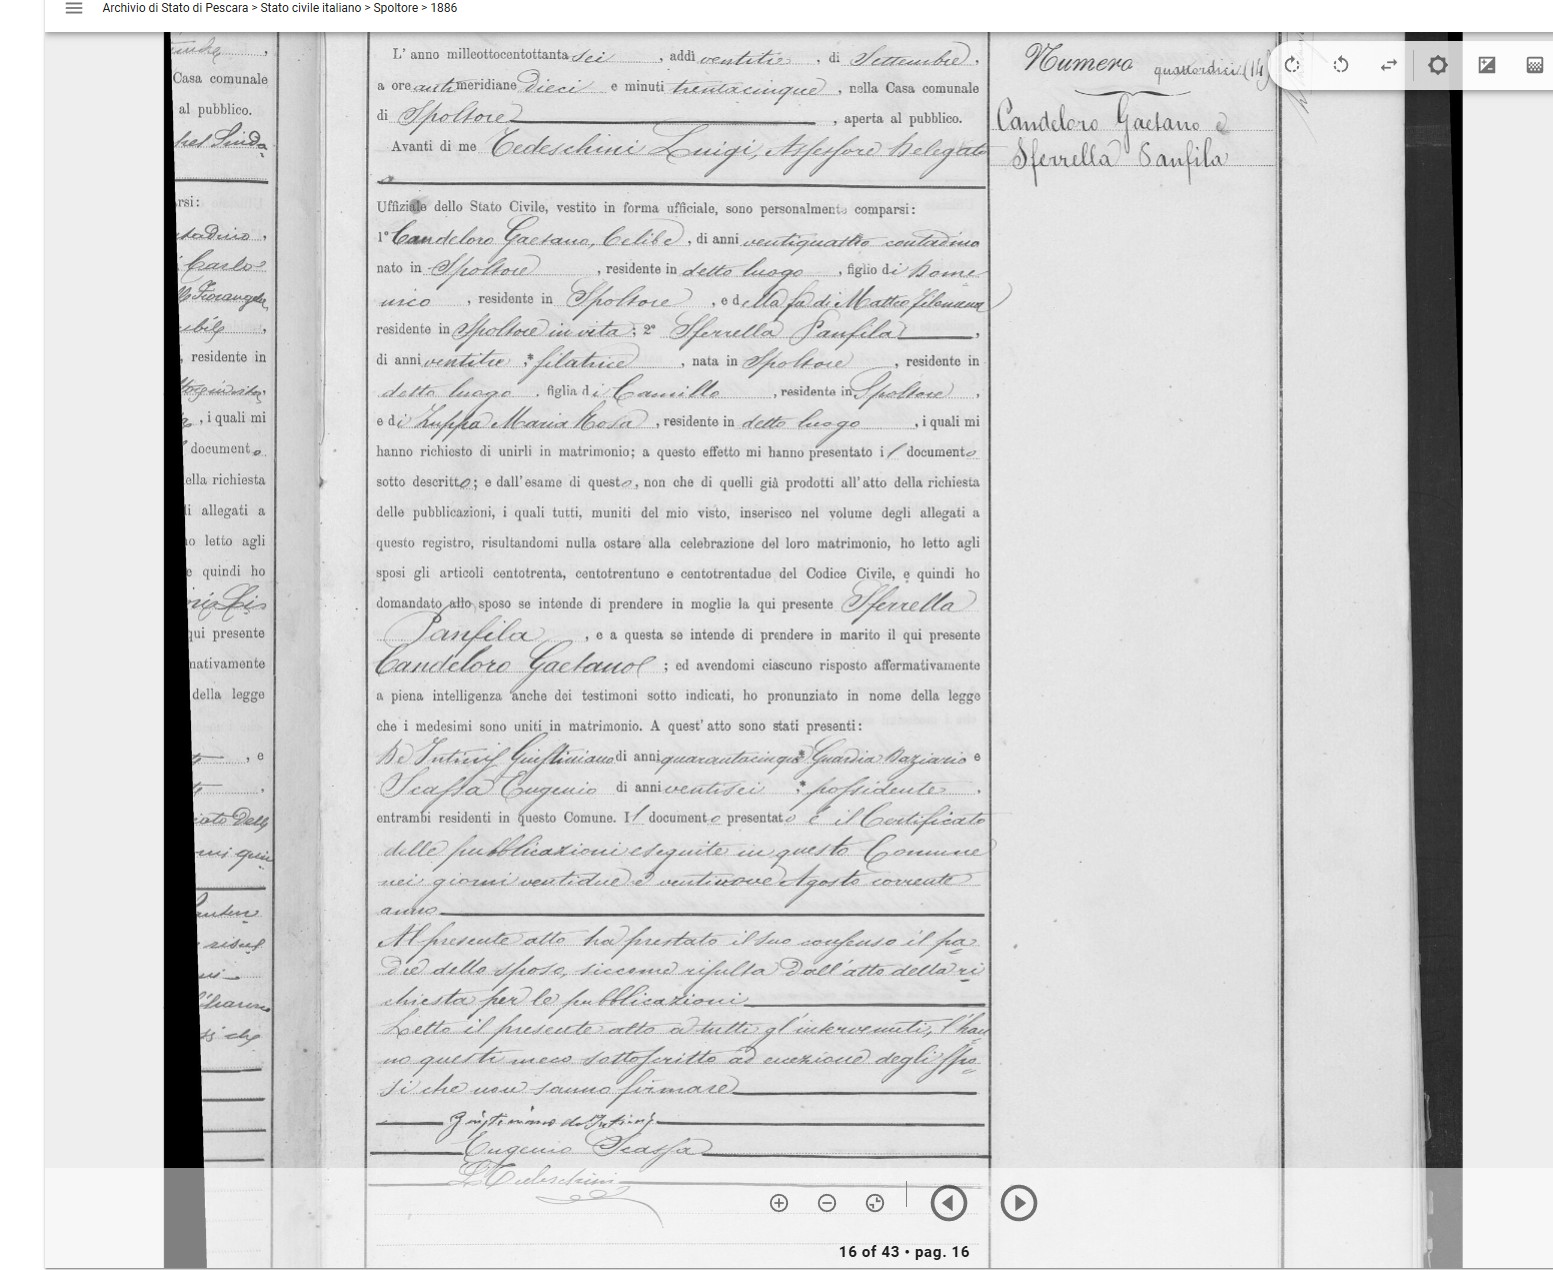 Archivio di Stato di Pescara > Stato civile italiano > Spoltore > 1886
Casa comunale
al pubblico.
rsi:
Carlo
, residente in
, i quali mi
documento
ella richiesta
li allegati a
o letto agli
e quindi ho
qui presente
nativamente
della legge
, e
L' anno milleottocentottantasei , addì ventitre , di Settembre ,
a ore antimeridiane dieci e minuti trentacinque , nella Casa comunale
di Spoltore , aperta al pubblico.
Avanti di me Tedeschini Luigi, Assessore Delegato
Uffiziale dello Stato Civile, vestito in forma ufficiale, sono personalmente comparsi:
1° Candeloro Gaetano, Celibe , di anni ventiquattro contadino
nato in Spoltore , residente in detto luogo , figlio di Dome
nico , residente in Spoltore , e della fu di Matteo Filomena
residente in Spoltore in vita ; 2° Sferrella Panfila ,
di anni ventitre ; filatrice , nata in Spoltore , residente in
detto luogo , figlia di Camillo , residente in Spoltore ,
e di Zuppa Maria Rosa , residente in detto luogo , i quali mi
hanno richiesto di unirli in matrimonio; a questo effetto mi hanno presentato il documento
sotto descritto; e dall'esame di questo, non che di quelli già prodotti all'atto della richiesta
delle pubblicazioni, i quali tutti, muniti del mio visto, inserisco nel volume degli allegati a
questo registro, risultandomi nulla ostare alla celebrazione del loro matrimonio, ho letto agli
sposi gli articoli centotrenta, centotrentuno e centotrentadue del Codice Civile, e quindi ho
domandato allo sposo se intende di prendere in moglie la qui presente Sferrella
Panfila , e a questa se intende di prendere in marito il qui presente
Candeloro Gaetano ; ed avendomi ciascuno risposto affermativamente
a piena intelligenza anche dei testimoni sotto indicati, ho pronunziato in nome della legge
che i medesimi sono uniti in matrimonio. A quest' atto sono stati presenti:
De Intinis Giustiniano di anni quarantacinque Guardia Daziario e
Scassa Eugenio di anni ventisei ; possidente ,
entrambi residenti in questo Comune. Il documento presentato è il Certificato
delle pubblicazioni eseguite in questo Comune
nei giorni ventidue e ventinove Agosto corrente
anno
Al presente atto ha prestato il suo consenso il pa
dre dello sposo, siccome risulta dall'atto della ri
chiesta per le pubblicazioni
Letto il presente atto a tutti gl'intervenuti, l'han
no questi meco sottoscritto ad eccezione degli spo
si che non sanno firmare
Giustiniano de Intinis
Eugenio Scassa
L Tedeschini
Numero quattordici (14)
Candeloro Gaetano e
Sferrella Panfila
16 of 43 • pag. 16